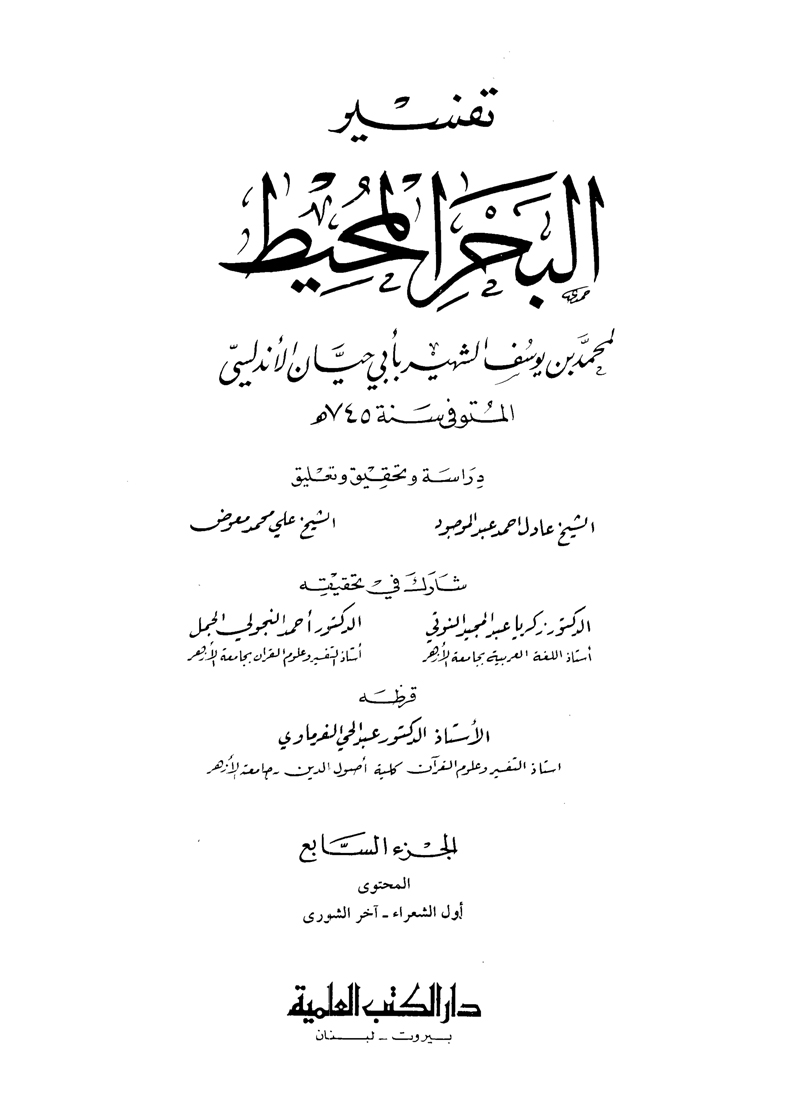 تفسير
البَحْرُ المُحيط
لمحمد بن يوسف الشهير بأبي حيّان الأندلسيّ
المتوفى سنة ٧٤٥هـ
دراسة وتحقيق وتعليق
الشيخ عادل احمد عبد الموجود الشيخ علي محمد معوض
شارك في تحقيقه
الدكتور زكريا عبد المجيد النوتي الدكتور أحمد النجولي الجمل
أستاذ اللغة العربية بجامعة الأزهر أستاذ التفسير وعلوم القرآن بجامعة الأزهر
قرظه
الأستاذ الدكتور عبد الحي الفرماوي
استاذ التفسير وعلوم القرآن كلية أصول الدين جامعة الأزهر
الجزء السابع
المحتوى
أول الشعراء - آخر الشورى
دار الكتب العلمية
بيروت - لبنان